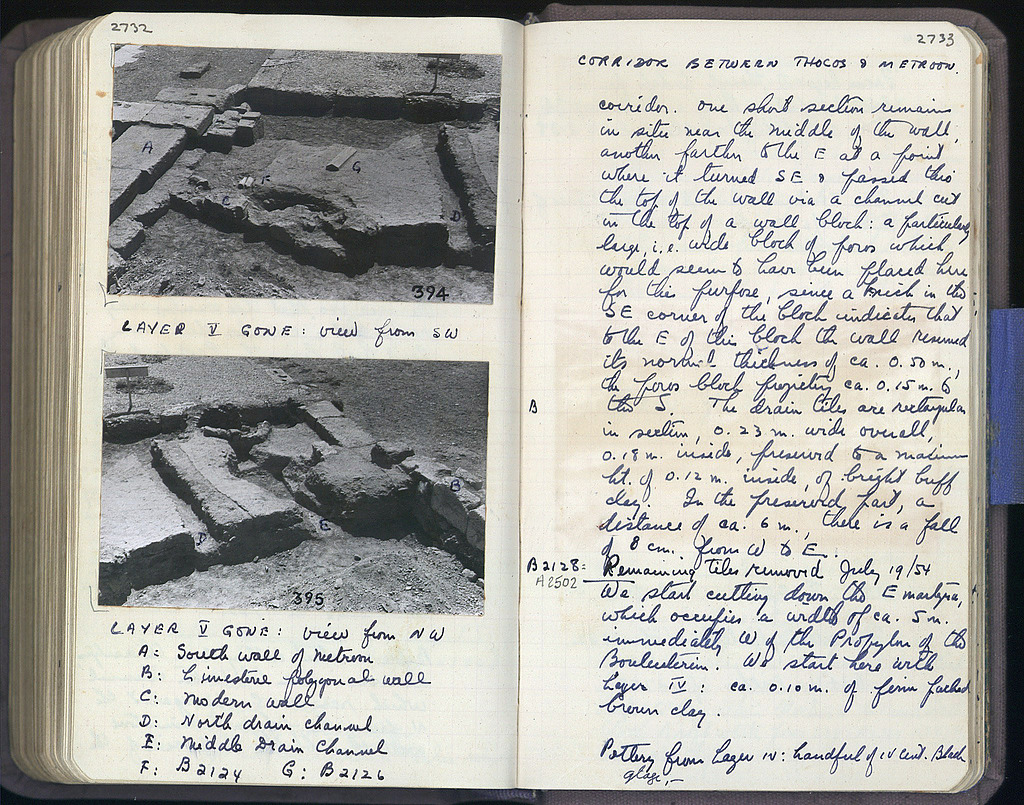 2732
A
F
G
C
D
394
LAYER V GONE: view from SW
B
D
E
395
LAYER V GONE: view from NW
A: South wall of Metroon
B: Limestone polygonal wall
C: Modern wall
D: North drain channel
E: Middle Drain Channel
F: B2124 G: B2126
2733
CORRIDOR BETWEEN THOLOS & METROON.
corridor. One short section remains
in situ near the middle of the wall,
another farther to the E at a point
where it turned SE & passed thro
the top of the wall via a channel cut
in the top of a wall block: a particularly
large, i.e. wide block of poros which
would seem to have been placed here
for this purpose, since a in the
SE corner of the block indicates that
to the E of this block the wall resumed
its normal thickness of ca. 0.50 m.,
the poros block projecting ca. 0.15 m. to
B
the S. The drain tiles are rectangular
in section, 0.23 m. wide overall,
0.18 m. inside, preserved to a maximum
ht. of 0.12 m. inside, of bright buff
clay. In the preserved part, a
distance of ca. 6 m., there is a fall
of 8 cm. from W to E.
B2128: Remaining tiles removed July 19/54
A2502
We start cutting down the E martyra,
which occupies a width of ca. 5 m.
immediately W of the Propylon of the
Bouleuterion. We start here with
Layer IV: ca. 0.10 m. of firm packed
brown clay.
Pottery from Layer IV: handful of IV cent. Black
glaze,-